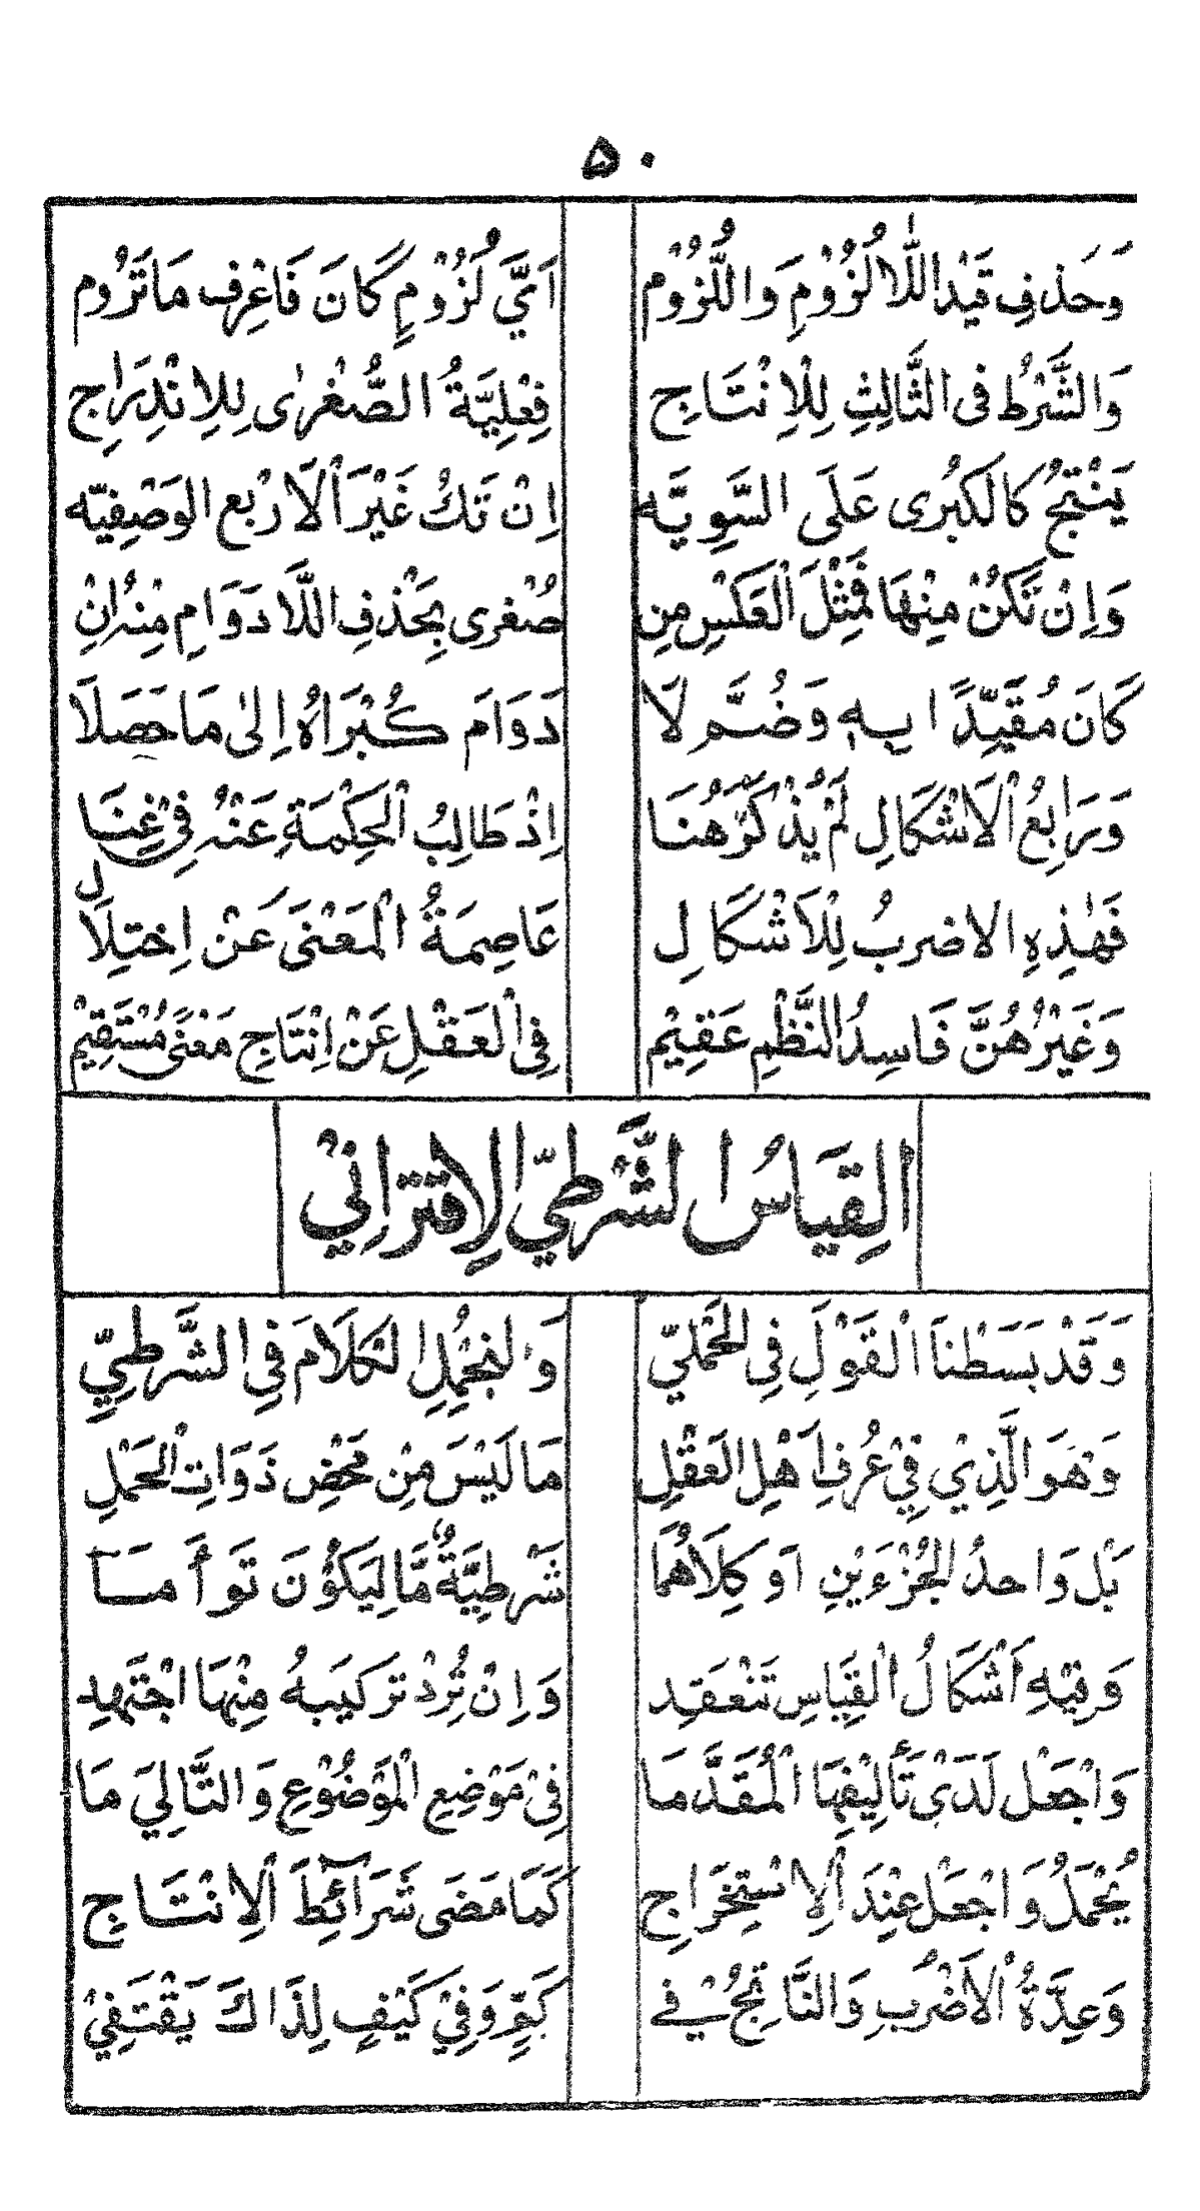 ۵۰
وَحَذفِ قَيْدِ اللَّا لُزُوْمِ وَاللُّزُوْمِ اَيَّ لُزُوْمٍ كَانَ فَاعْرِف مَا تَرُوم
وَالشَّرْطُ فى الثَّالِثِ لِلْاِنْتَاجِ فِعْلِيَّةُ الصُّغْرٰى لِلِانْدِرَاجِ
يَنْتِجُ كالكُبْرى عَلَى السَّوِيَّه اِنْ تَكُ غَيْرَ الْاَرْبع الوَصْفِيّه
وَاِنْ تَكُنْ مِنْهَا فَمِثْلَ الْعَكْسِ مِن صُغرى بِحَذفِ اللَّادَوَامِ مِنْهُ اِنْ
كَانَ مُقَيَّدًا بِهٖ وَضُمَّ لَا دَوَامَ كُبْرَاهُ اِلىٰ مَا حَصَلَا
وَرَابِعُ الْاَشْكَالِ لَمْ يُذْكَرْ هُنَا اِذْ طَالِبُ الْحِكْمَةِ عَنْهُ فِيْ غِنَا
فَهٰذِهِ الاضربُ لِلْاَشْكَالِ عَاصِمَةُ الْمَعْنَى عَنْ اِختِلَال
وَغَيْرُهُنَّ فَاسِدُ النَّظْمِ عَقِيْم فِى الْعَقْلِ عَنْ اِنْتَاجِ مَعْنًى مُسْتَقِيْم
القِيَاسُ الشَّرْطِيّ الِاقتِرَانِيْ
وَقَدْ بَسَطْنَا الْقَوْلَ فِى الحَمْلِيّ وَلنُجْمِلِ الْكَلَامَ فِى الشَّرْطِيِّ
وَهَوَ الَّذِيْ فِيْ عُرْفِ اَهْلِ العَقْلِ مَا لَيْسَ مِنْ مَحْضِ ذَوَاتِ الْحَمْلِ
بَلْ وَاحدُ الجُزْءَيْنِ اَو كِلَاهُمَا شَرْطِيَّةٌ مَّا لِيَكُوْنَ تَوأَمَا
وَفِيْهِ اَشْكَالُ الْقِيَاسِ تَنْعَقِد وَاِنْ تُرِدْ تَركيبَهُ مِنْهَا اجْتَهِد
وَاجْعَلْ لَدَىْ تَأْلِيْفِهَا الْمُقَدَّمَا فِىْ مَوْضِعِ الْمَوْضُوْعِ وَالتَّالِيَ مَا
يُحْمَلُ وَاجْعَلْ عِنْدَ اْلِاسْتِخْرَاجِ كَمَا مَضَى شَرَآئِطَ اْلِانْتَاجِ
وَعِدَّةُ الْاَضْرُبِ وَالنَّاتِجُ فِي كَمٍّ وَفِيْ كَيْفٍ لِذَاكَ يَقْتَفِيْ